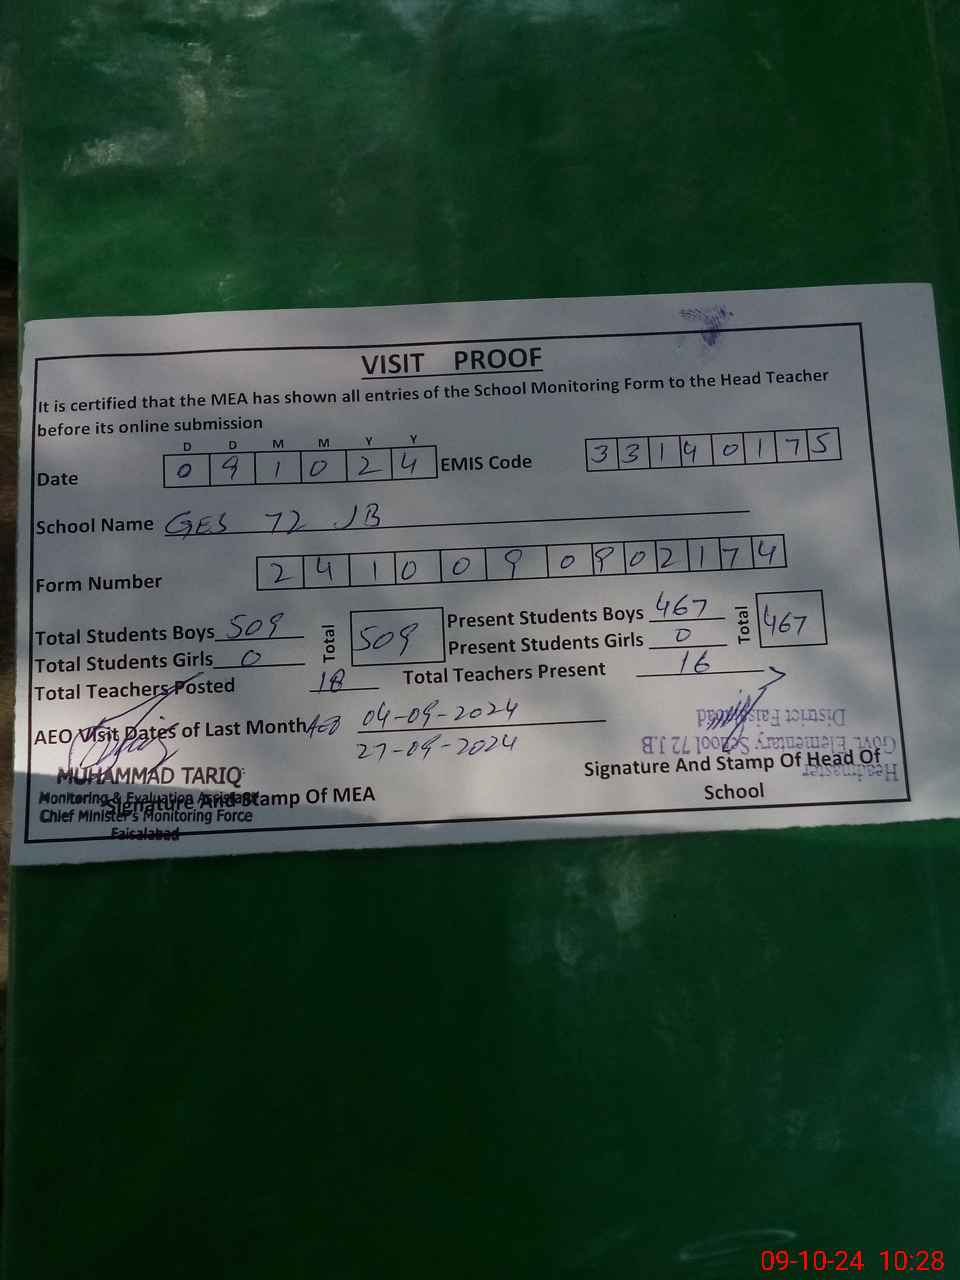 VISIT PROOF
It is certified that the MEA has shown all entries of the School Monitoring Form to the Head Teacher
before its online submission
D D M M Y Y
Date 0 9 1 0 2 4 EMIS Code 3 3 1 4 0 1 7 5
School Name GES 72 JB
Form Number 2 4 1 0 0 9 0 9 0 2 1 7 4
Total Students Boys 509 Total 509 Present Students Boys 467 Total 467
Total Students Girls 0 Present Students Girls 0
Total Teachers Posted 18 Total Teachers Present 16
AEO Visit Dates of Last Month AEO 04-09-2024
27-09-2024
MUHAMMAD TARIQ
Monitoring & Evaluation Assistant
Chief Minister's Monitoring Force
Faisalabad
Signature And Stamp Of MEA
Headmaster
Govt. Elementary School 72 J.B
District Faisalabad
Signature And Stamp Of Head Of
School
09-10-24 10:28